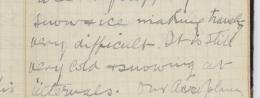 snow & ice making travel
very difficult. It is still
very cold & snowing at
intervals. Our